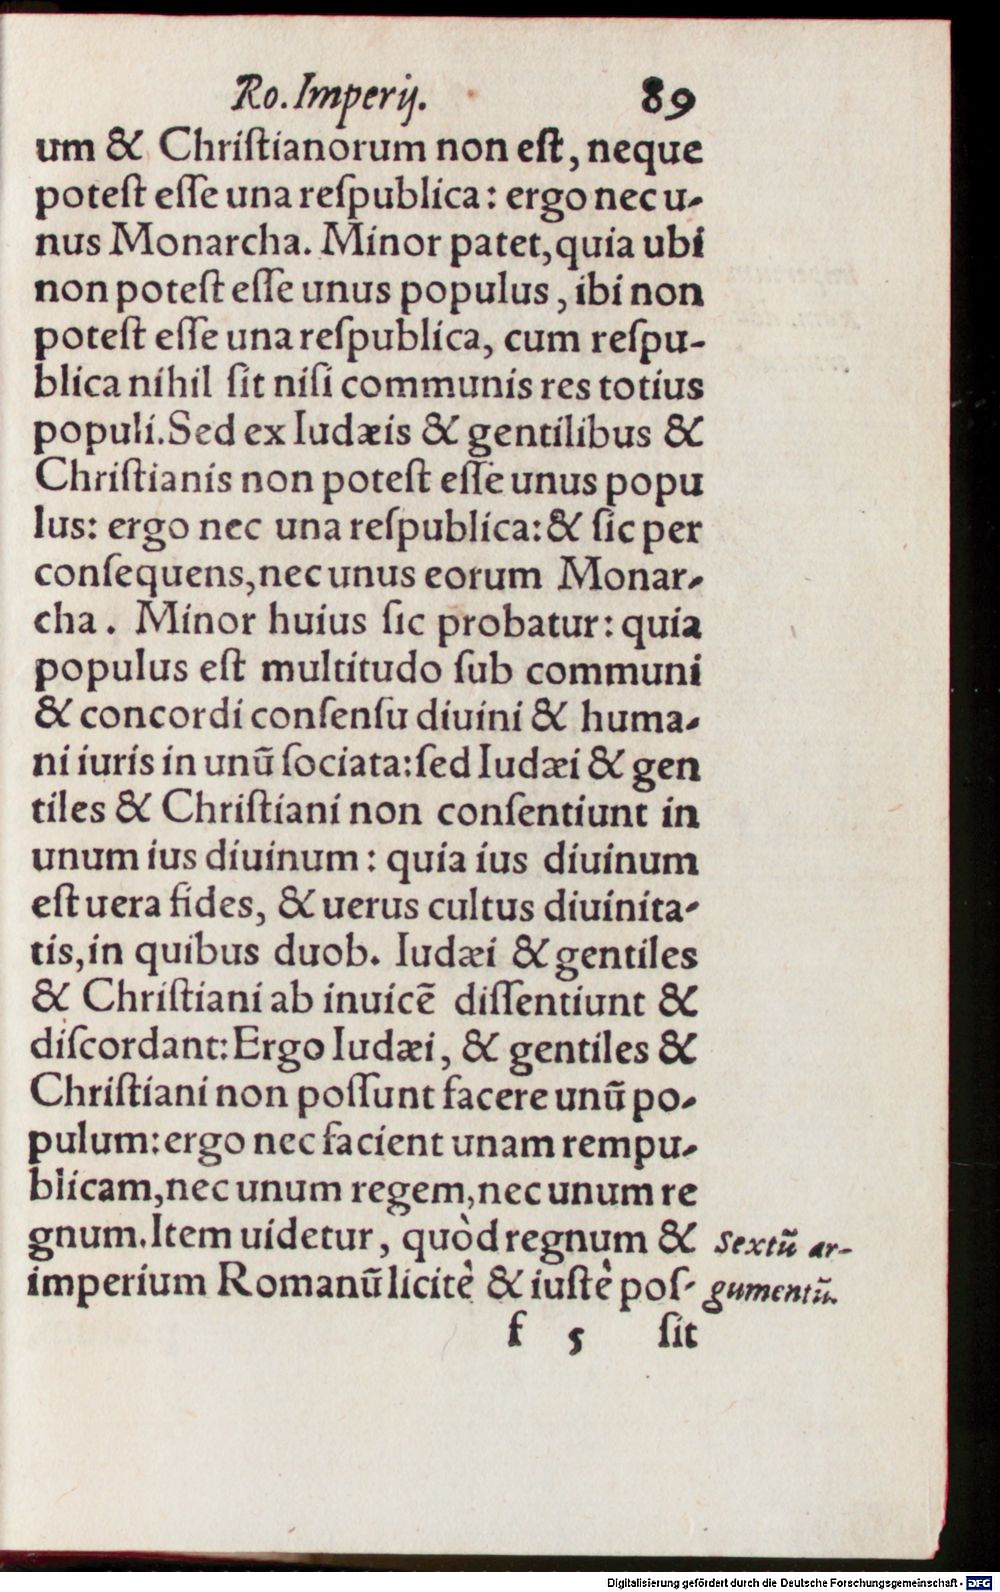 Ro. Imperij. 89
um & Chriſtianorum non eſt, neque
poteſt eſſe una reſpublica: ergo nec u-
nus Monarcha. Minor patet, quia ubi
non poteſt eſſe unus populus, ibi non
poteſt eſſe una reſpublica, cum reſpu-
blica nihil ſit niſi communis res totius
populi. Sed ex Iudæis & gentilibus &
Chriſtianis non poteſt eſſe unus popu
lus: ergo nec una reſpublica: & ſic per
conſequens, nec unus eorum Monar-
cha. Minor huius ſic probatur: quia
populus eſt multitudo ſub communi
& concordi conſenſu diuini & huma-
ni iuris in unũ ſociata: ſed Iudæi & gen
tiles & Chriſtiani non conſentiunt in
unum ius diuinum: quia ius diuinum
eſt uera fides, & uerus cultus diuinita-
tis, in quibus duob. Iudæi & gentiles
& Chriſtiani ab inuicẽ diſſentiunt &
diſcordant: Ergo Iudæi, & gentiles &
Chriſtiani non poſſunt facere unũ po-
pulum: ergo nec facient unam rempu-
blicam, nec unum regem, nec unum re
gnum. Item uidetur, quòd regnum &
imperium Romanũ licitè & iuſtè poſ-
Sextũ ar-
gumentũ.
f 5 ſit
Digitalisierung gefördert durch die Deutsche Forschungsgemeinschaft - DFG